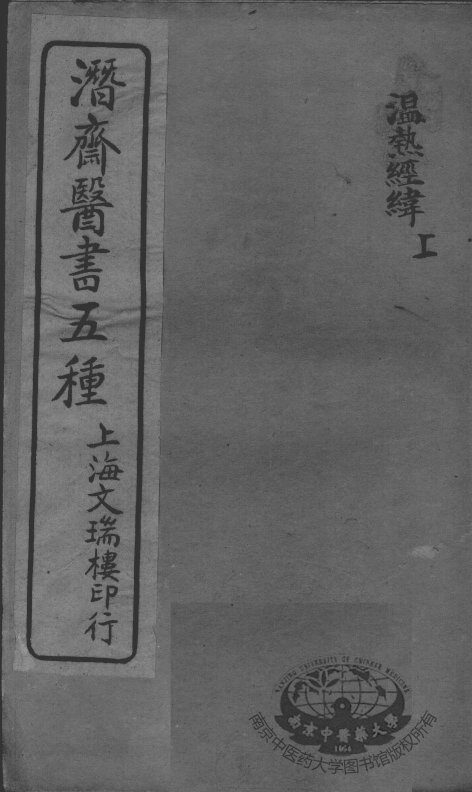 温熱經緯
上
潛齋醫書五種
上海文瑞樓印行
NANJING UNIVERSITY OF CHINESE MEDICINE
南京中醫藥大學
1954
南京中医药大学图书馆版权所有